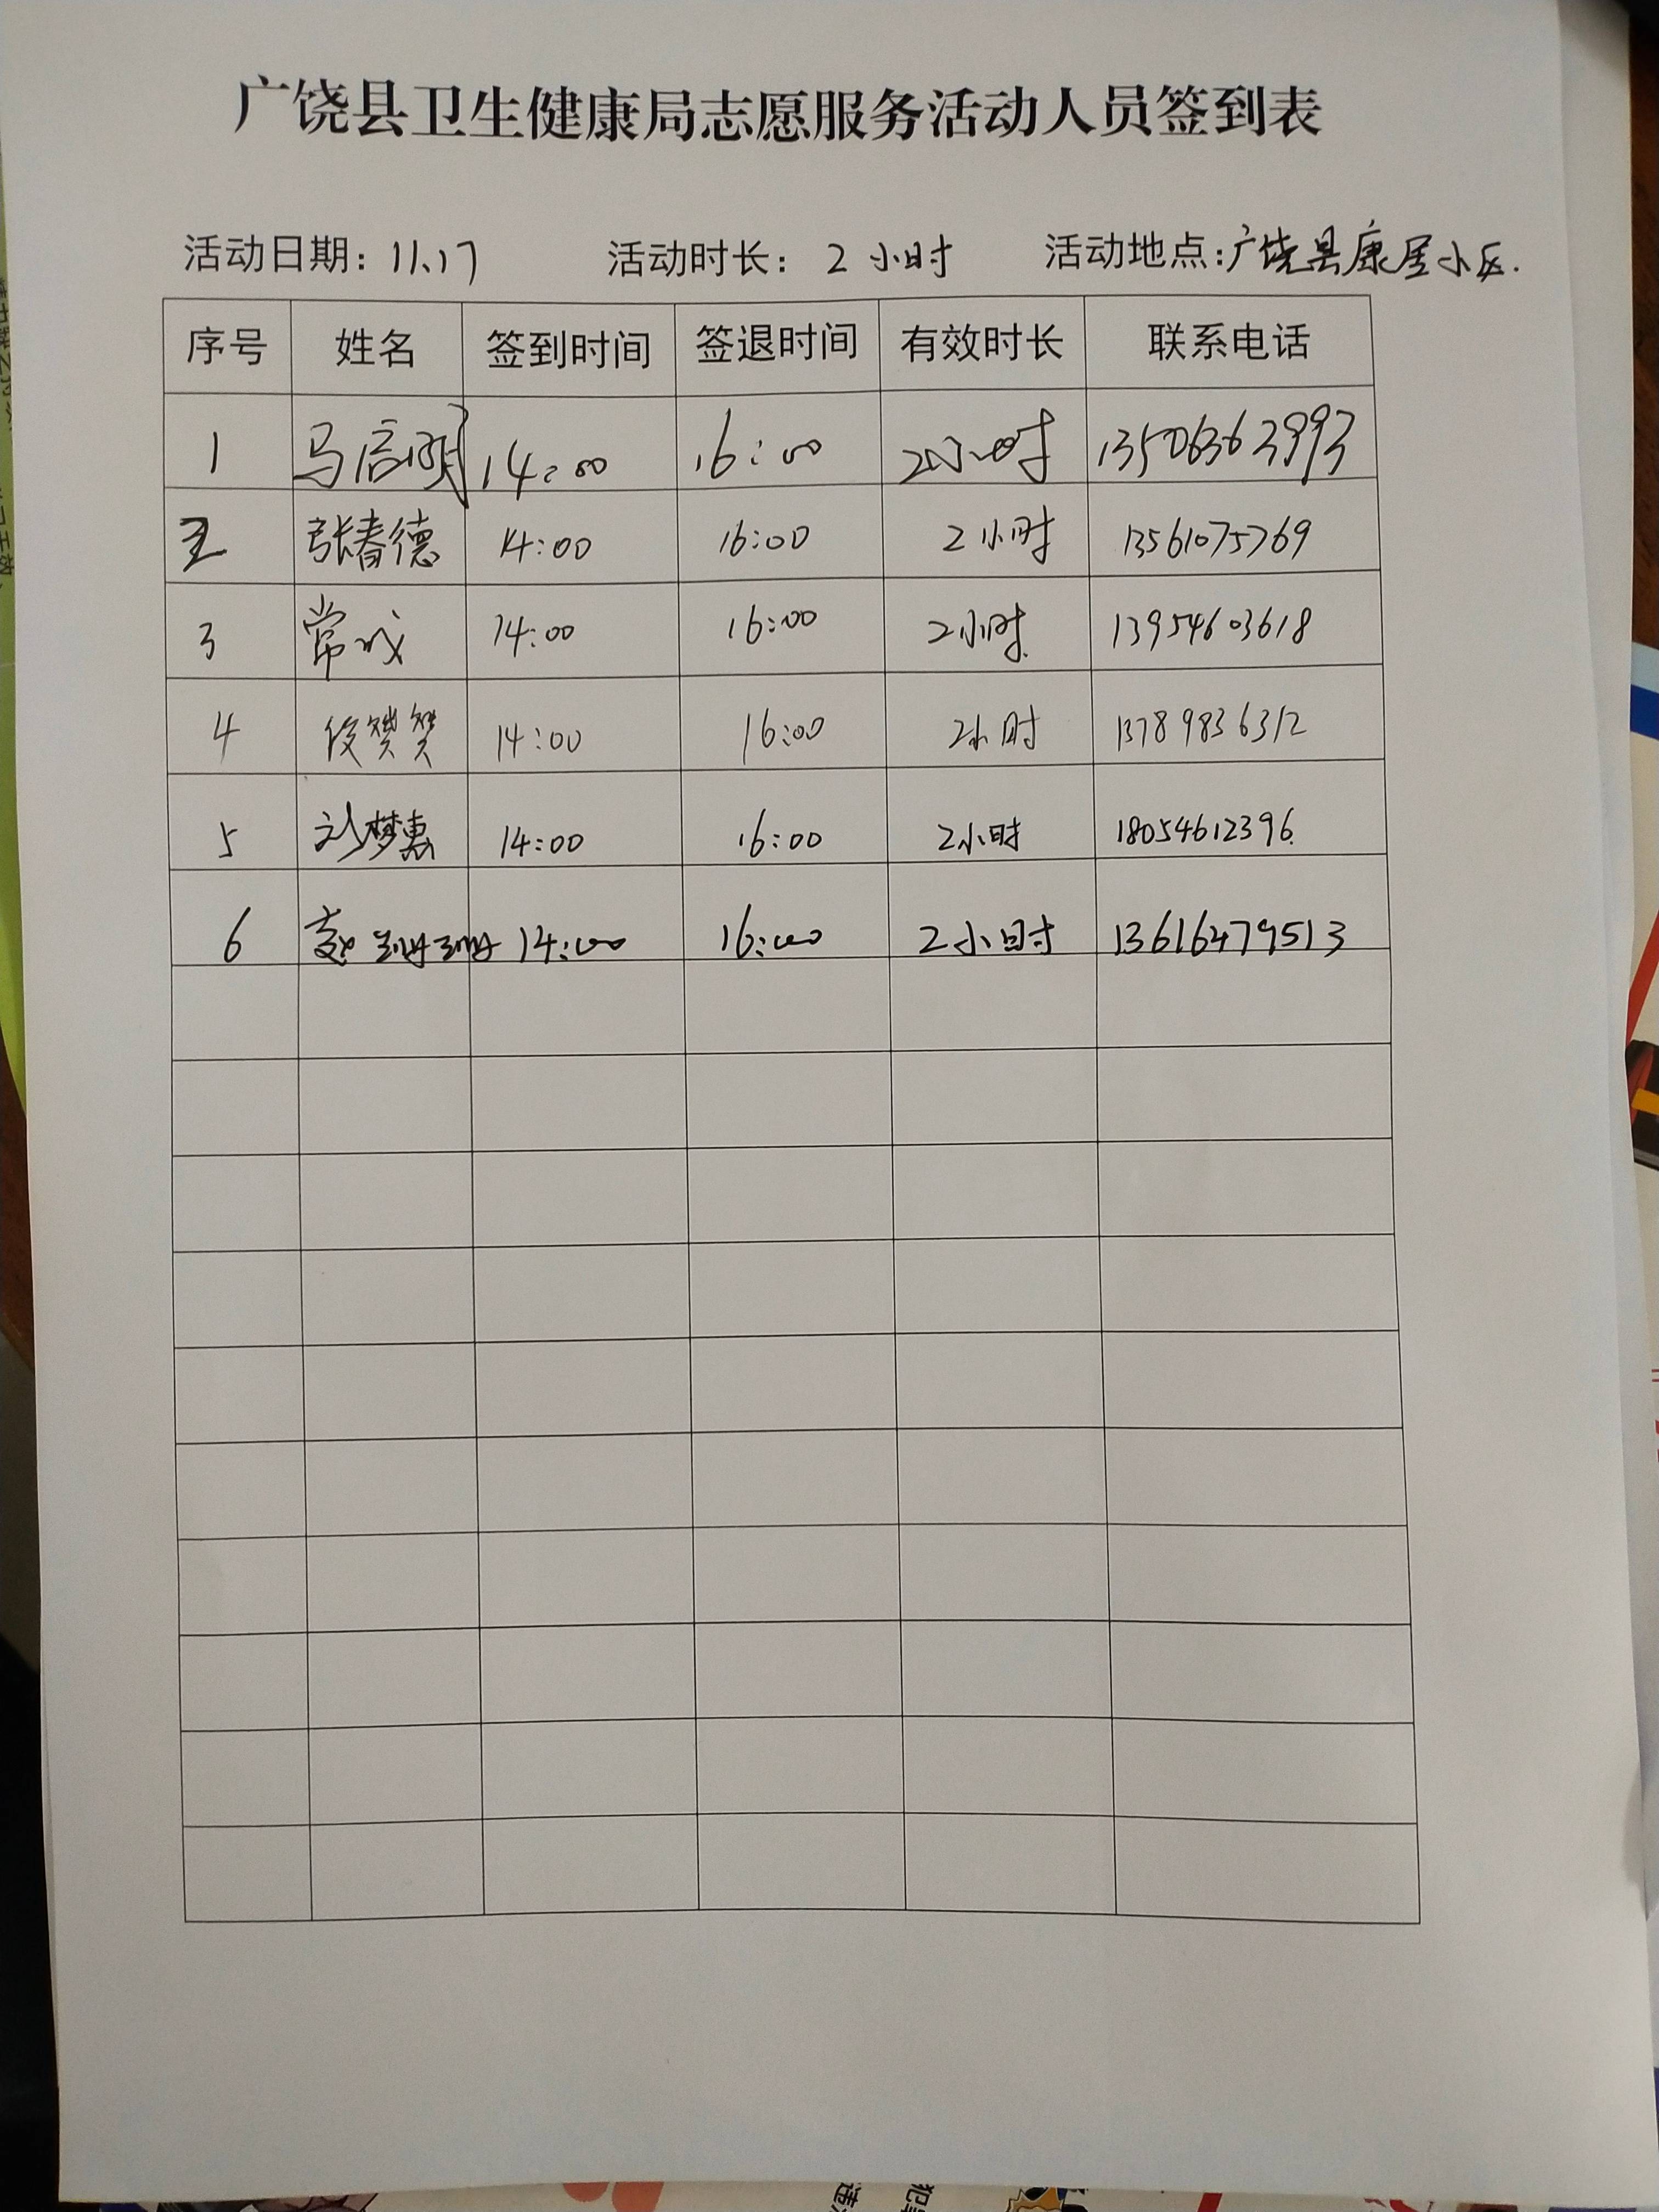 广饶县卫生健康局志愿服务活动人员签到表
活动日期：11、17 活动时长：2 小时 活动地点：广饶县康居小区.
序号 姓名 签到时间 签退时间 有效时长 联系电话
1 马信明 14:00 16:00 2小时 13506363993
2 张春德 14:00 16:00 2小时 13561075769
3 常成 14:00 16:00 2小时. 13954603618
4 段赟赟 14:00 16:00 2小时 13789836312
5 刘梦惠 14:00 16:00 2小时 18054612396.
6 赵姗姗 14:00 16:00 2小时 13616479513